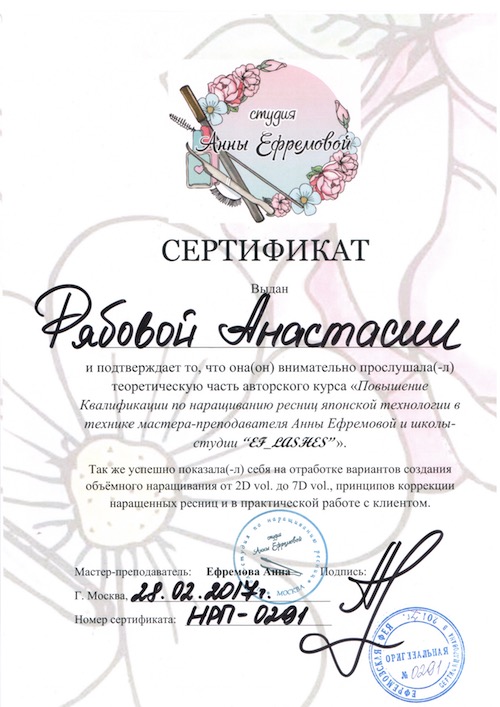 студия
Анны Ефремовой
СЕРТИФИКАТ
Выдан
Рябовой Анастасии
и подтверждает то, что она(он) внимательно прослушала(-л)
теоретическую часть авторского курса «Повышение
Квалификации по наращиванию ресниц японской технологии в
технике мастера-преподавателя Анны Ефремовой и школы-
студии “EF_LASHES”».
Так же успешно показала(-л) себя на отработке вариантов создания
объёмного наращивания от 2D vol. до 7D vol., принципов коррекции
наращенных ресниц и в практической работе с клиентом.
студия по наращиванию ресниц
студия
Анны Ефремовой
МОСКВА
Мастер-преподаватель: Ефремова Анна Подпись:
Г. Москва, 28.02.2017г.
Номер сертификата: НРП-0291
ЕФРЕМОВСКАЯ ФЕЯ
ОРИГИНАЛЬНАЯ
№ 0291